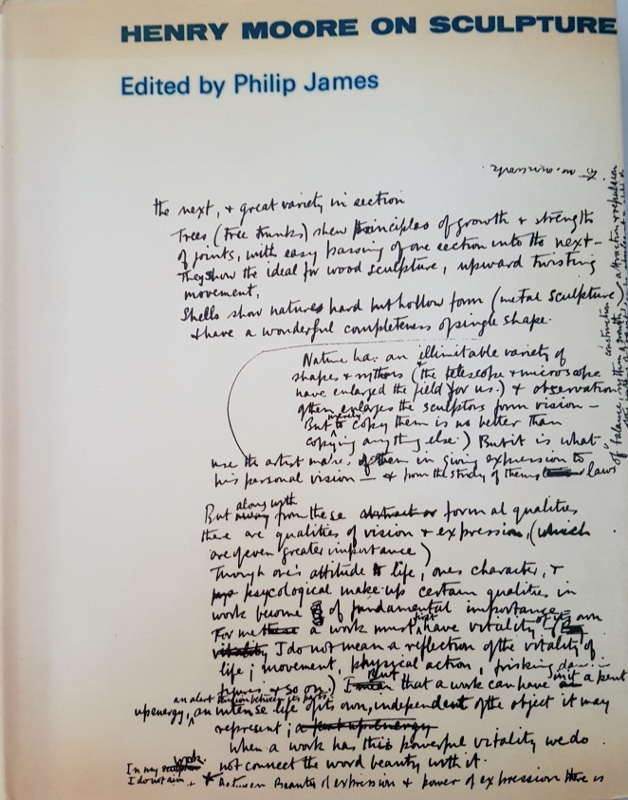 HENRY MOORE ON SCULPTURE
Edited by Philip James
the next, & great variety in section
Trees (tree trunks) show principles of growth & strength
of joints, with easy passing of one section into the next –
They show the ideal for wood sculpture, upward twisting
movement,
Shells show natures hard but hollow form (metal sculpture
& have a wonderful completeness of single shape.
Nature has an illimitable variety of
shapes & rythms (the telescope & microscope
have enlarged the field for us.) & observation
of them enlarges the sculptors form vision –
But merely to copy them is no better than
copying anything else.) But it is what
use the artist makes of them in giving expression to
his personal vision — & from the study of them laws
of balance, rhythm construction growth, attraction & repulsion
But along with away from these abstract or formal qualities
there are qualities of vision & expression, (which
are of even greater importance)
Through one's attitude to life, ones character, &
psycological make-up certain qualities, in
work become of fundamental importance
For me these a work must first have vitality of its own
vitality I do not mean a reflection of the vitality of
life; movement, physical action, frisking
figures & so on.) I mean But that a work can have in it a pent
up energy, an alert tension between its parts, an intense life of its own, independent of the object it may
represent; a pent up energy
When a work has this powerful vitality we do
not connect the word beauty with it.
In my work sculpture
I do not aim
* Between Beauty of expression & power of expression there is